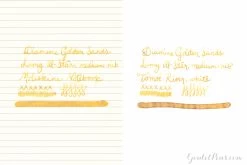 Diamine Golden Sands
Lamy Al-Star medium nib
Diamine Golden Sands
Lamy Al-Star medium nib
Tomoe River, white
GouletPens.com